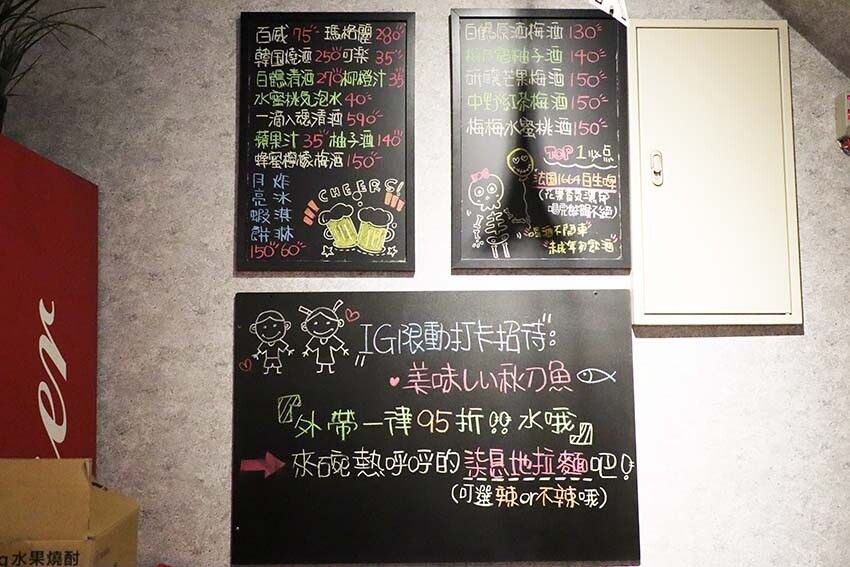 百威 75 瑪格麗 280
韓国燒酒 250 可樂 35
白鶴清酒 270 柳橙汁 35
水蜜桃気泡水 40
一滴入魂清酒 590
蘋果汁 35 柚子酒 140
蜂蜜檸檬梅酒 150
月亮蝦餅 150
炸冰淇淋 60
CHEERS!
白鶴原酒梅酒 130
柚子酒 140
芒果梅酒 150
中野紅茶梅酒 150
梅梅水蜜桃酒 150
TOP 1必点
法國1664白生啤
(花果香気濃郁
喝完餘韻不絕)
喝酒不開車
未成年勿飲酒
IG限動打卡招待:
美味しい秋刀魚
『外帶一律95折!! 水哦』
來碗熱呼呼的柒息地拉麵吧!
(可選辣or不辣哦)
er
水果燒酎